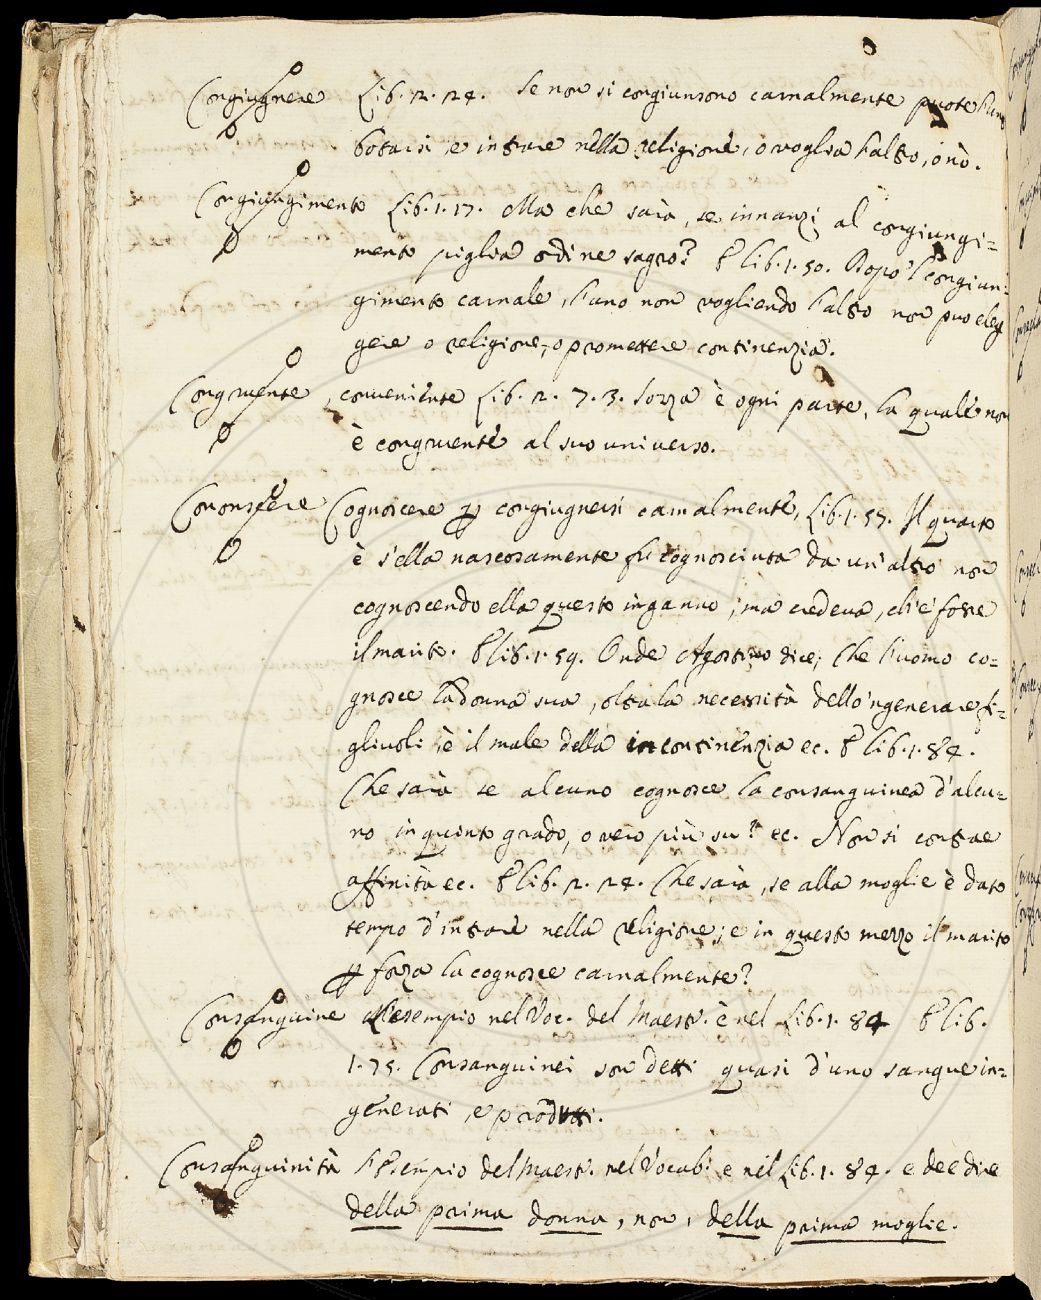 Congiugnere Lib. 2. 24. Se non si congiunsono carnalmente puote l'uno
botarsi, e intrare nella religione, o voglia l'altro, o nò.
Congiungimento Lib. 1. 17. Ma che sarà, se innanzi al congiungi=
mento piglia ordine sagro? E lib. 1. 50. Dopo 'l congiun=
gimento carnale, l'uno non vogliendo l'altro non puo eleg
gere o religione, o promettere continenzia.
Congruente, conveniente Lib. 2. 7. 3. Sozza è ogni parte, la quale non
è congruente al suo universo.
Conoscere Cognoscere p congiugnersi carnalmente, Lib. 1. 57. Il quarto
è s'ella nascosamente fu cognosciuta da un'altro non
cognoscendo ella questo inganno, ma credeva, ch'e' fosse
il marito. E lib. 1. 59. Onde Agostino dice; Che l'uomo co=
gnosce la donna sua, oltra la necessità dello 'ngenerare fi=
gliuoli, è il male della incontinenzia ec. E lib. 1. 84.
Che sarà se alcuno cognosce la consanguinea d'alcu=
no in quinto grado, o vero più su? ec. Non si contrae
affinità ec. E lib. 2. 24. Che sarà, se alla moglie è dato
tempo d'intrare nella religione; e in questo mezzo il marito
p forza la cognosce carnalmente?
Consanguineo L'esempio nel Voc. del Maestr. è nel Lib. 1. 84 E lib.
1. 75. Consanguinei son detti quasi d'uno sangue in=
generati, e prodotti.
Consanguinità L'Esempio del Maestr. nel Vocab. e nel Lib. 1. 84. e dee dire
della prima donna, non, della prima moglie.